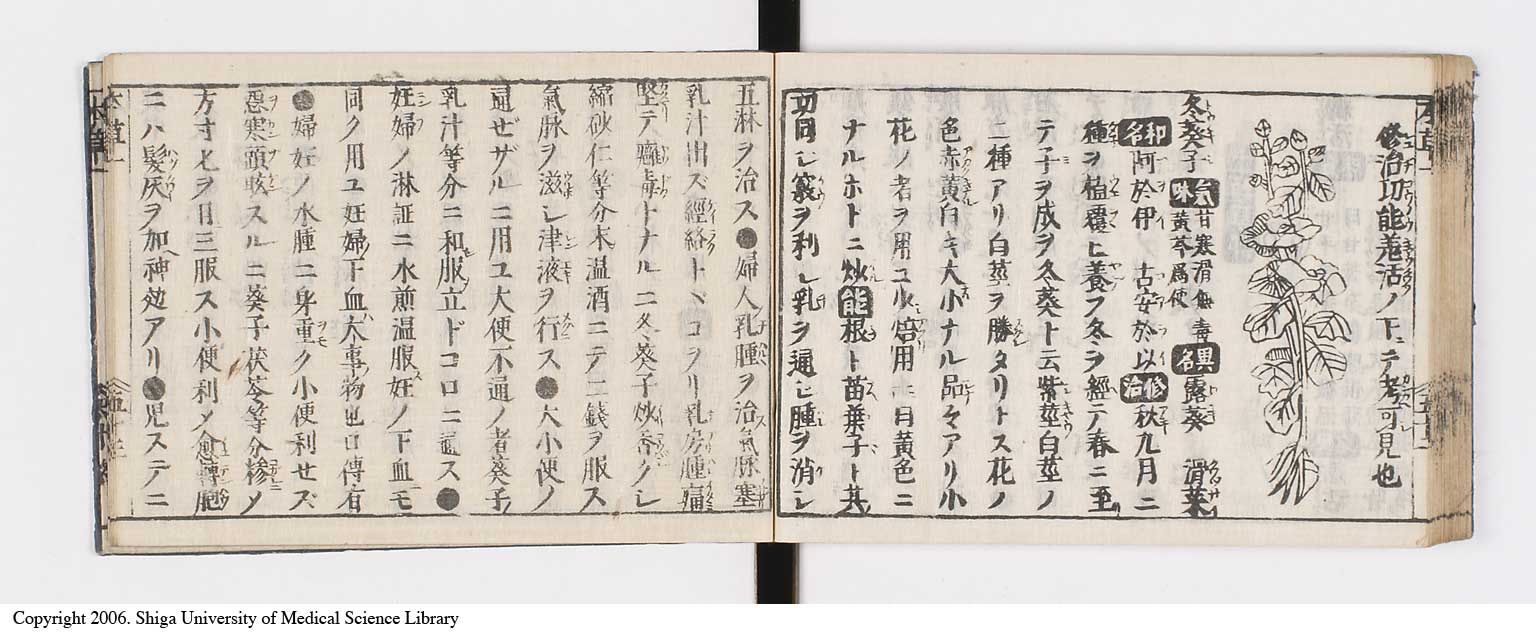 修治功能羗活ノ下ニテ考可見也
冬葵子 氣味 甘寒滑無毒 黃芩爲使 異名 露葵 滑菜
和名 阿於伊 古安於以 修治 秋九月ニ
種ヲ植覆ヒ養フ冬ヲ經テ春ニ至
テ子ヲ成ヲ冬葵ト云紫莖白莖ノ
二種アリ白莖ヲ勝タリトス花ノ
色赤黃白キ大小ナル品々アリ小
花ノ者ヲ用ユ火焙用
ナルホトニ炒 能 根ト苗葉子ト其
功同シ竅ヲ利シ乳ヲ通シ腫ヲ消シ
五淋ヲ治ス●婦人乳腫ヲ治氣脉塞
乳汁出ズ經絡トヾコヲリ乳房腫痛
堅テ癰毒トナルニ冬葵子炒香クシ
縮砂仁等分末温酒ニテ二錢ヲ服ス
氣脉ヲ滋シ津液ヲ行ス●大小便ノ
通ゼザルニ用ユ大便不通ノ者葵子
乳汁等分ニ和服立ドコロニ通ス●
妊婦ノ淋証ニ水煎温服妊ノ下血モ
同ク用ユ妊婦下血大事物也口傳有
●婦妊ノ水腫ニ身重ク小便利セズ
惡寒頭眩スルニ葵子茯苓等分糝メ
方寸匕ヲ日三服ス小便利メ愈轉胞
ニハ髮灰ヲ加神効アリ●児ステニ
Copyright 2006. Shiga University of Medical Science Library